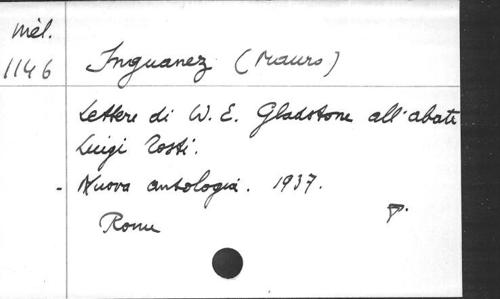 Mél.
1146
Inguanez (Mauro)
Lettere di W. E. Gladstone all'abate
Luigi Tosti.
- Nuova antologia. 1937.
Rome
P.